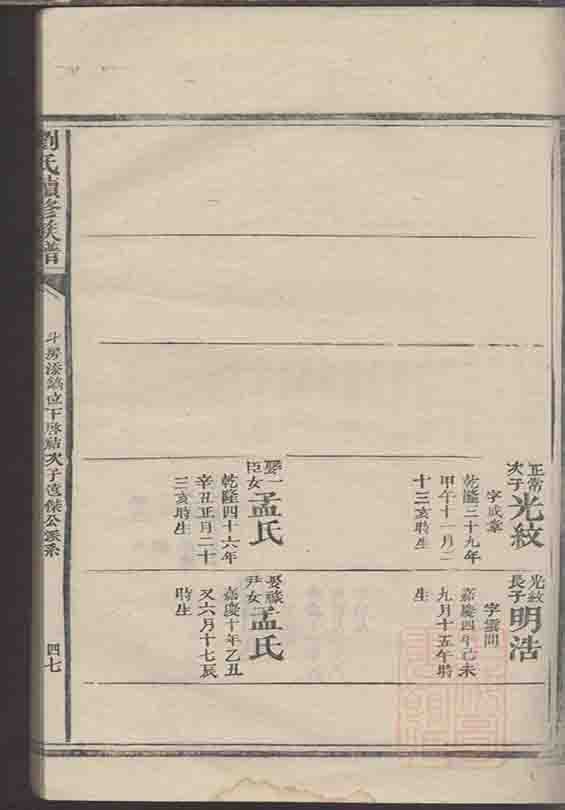 正常
次子
光紋
字成章
乾隆三十九年
甲午十一月二
十三亥時生
娶一
臣女
孟氏
乾隆四十六年
辛丑正月二十
三亥時生
光紋
長子
明浩
字雲問
嘉慶四年己未
九月十五午時
生
娶
尹女
孟氏
嘉慶十年乙丑
又六月十七辰
時生
劉氏續修族譜
斗房添鎬位下啓結次子傑公派系
四七